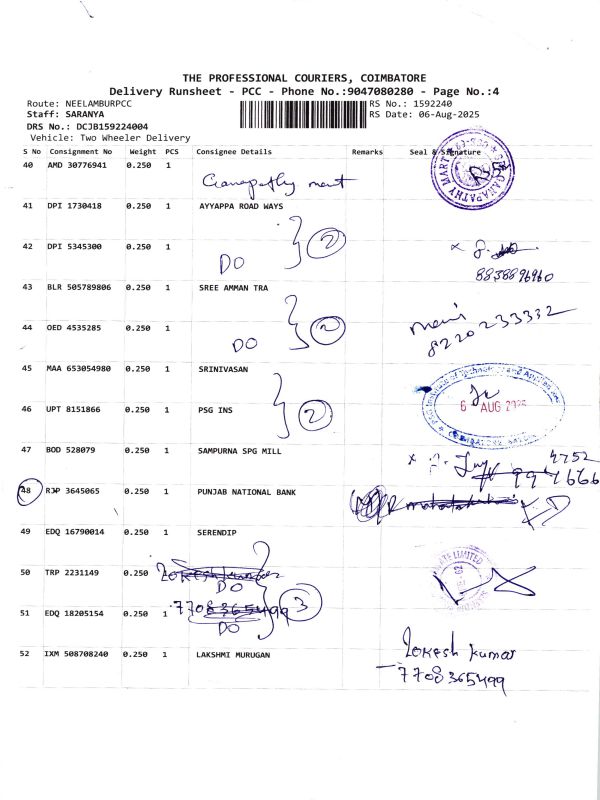 THE PROFESSIONAL COURIERS, COIMBATORE
Delivery Runsheet - PCC - Phone No.:9047080280 - Page No.:4
Route: NEELAMBURPCC RS No.: 1592240
Staff: SARANYA RS Date: 06-Aug-2025
DRS No.: DCJB159224004
Vehicle: Two Wheeler Delivery
S No Consignment No Weight PCS Consignee Details Remarks Seal & Signature
40 AMD 30776941 0.250 1
Ganapathy mart
41 DPI 1730418 0.250 1 AYYAPPA ROAD WAYS
2
42 DPI 5345300 0.250 1
DO
8838896960
43 BLR 505789806 0.250 1 SREE AMMAN TRA
2
8220233332
44 OED 4535285 0.250 1
DO
45 MAA 653054980 0.250 1 SRINIVASAN
6 AUG 2025
46 UPT 8151866 0.250 1 PSG INS
2
47 BOD 528079 0.250 1 SAMPURNA SPG MILL
4752
48 RJP 3645065 0.250 1 PUNJAB NATIONAL BANK
49 EDQ 16790014 0.250 1 SERENDIP
50 TRP 2231149 0.250
DO
3
51 EDQ 18205154 0.250 1 7708365499
DO
52 IXM 508708240 0.250 1 LAKSHMI MURUGAN
Lokesh kumar
7708365499